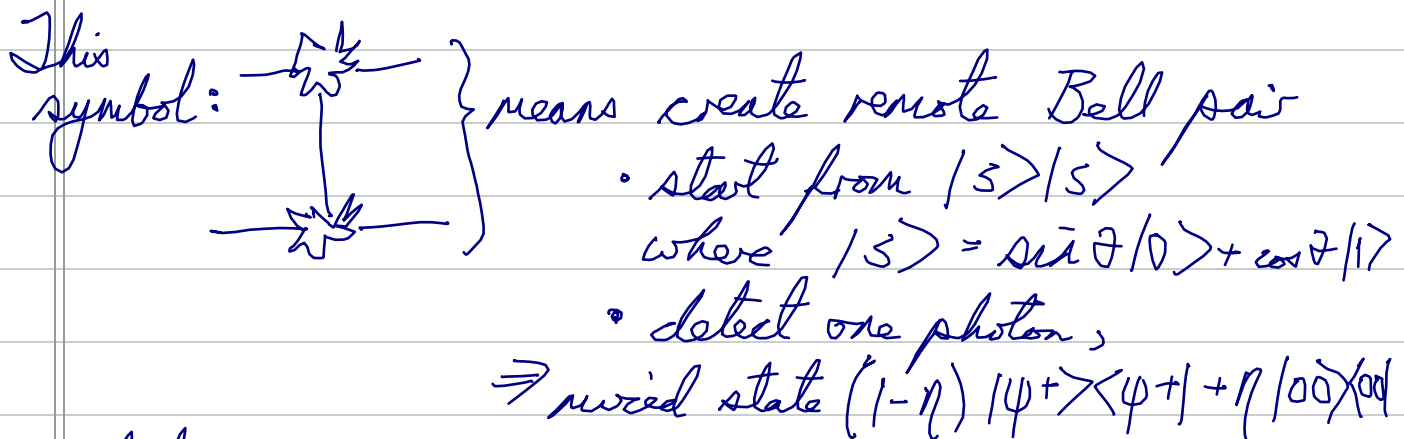 This
symbol: } means create remote Bell pair
• start from |s>|s>
where |s> = sin θ|0> + cos θ|1>
• detect one photon,
⇒ mixed state (1-η) |ψ+><ψ+| + η |00><00|